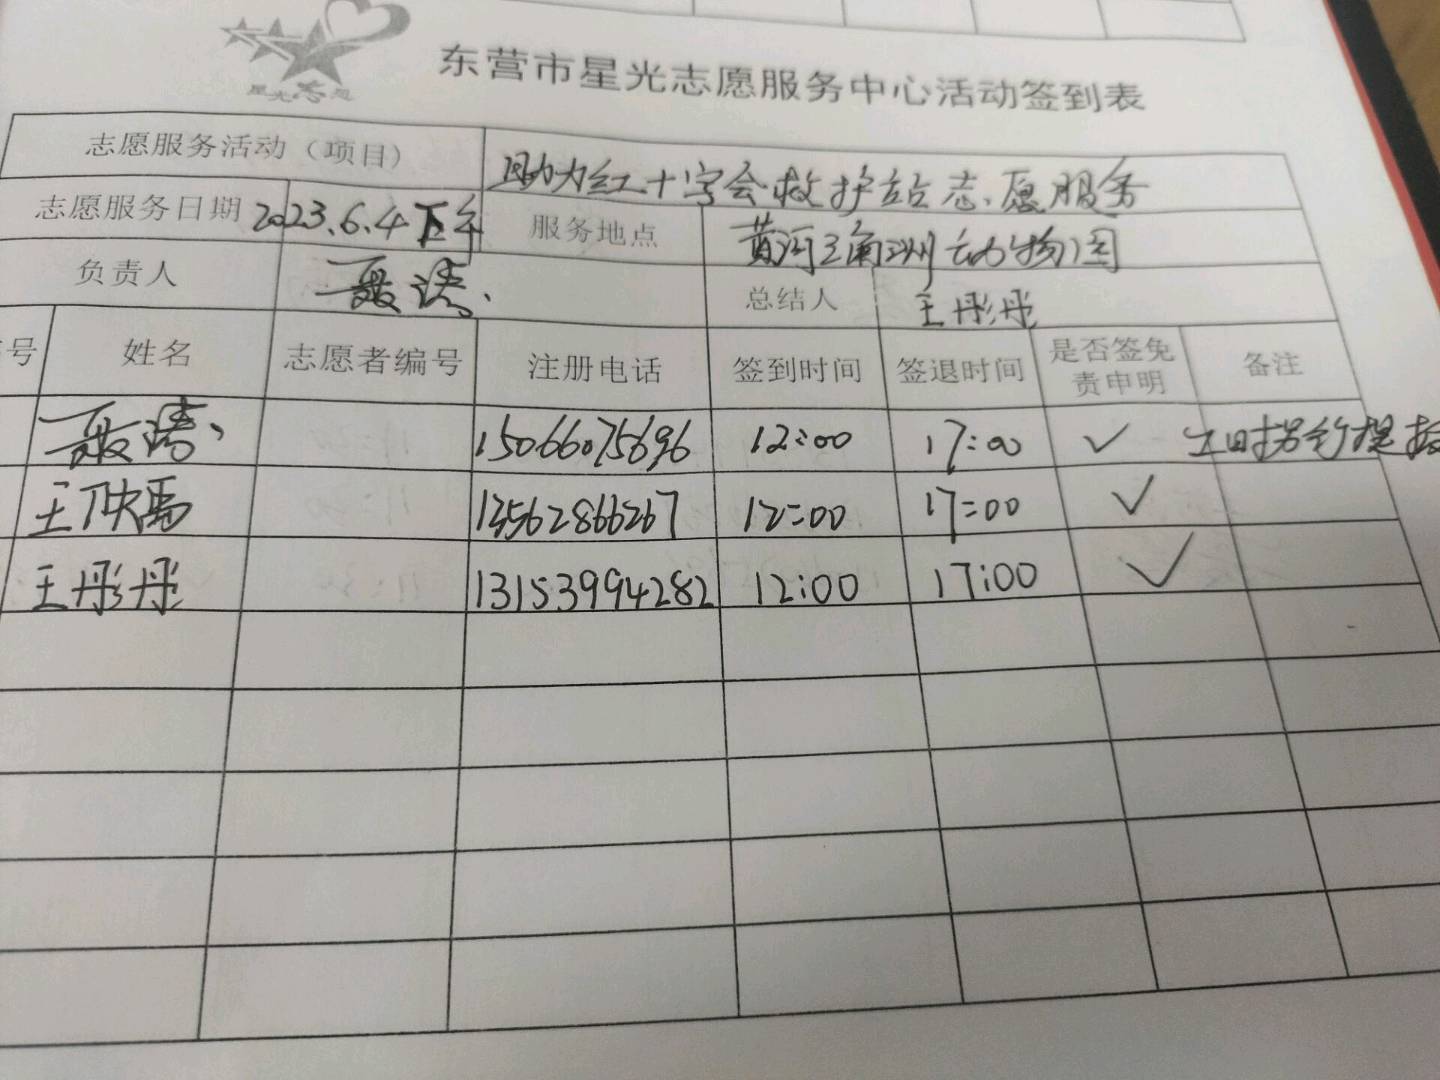 星光志愿
东营市星光志愿服务中心活动签到表
志愿服务活动（项目） 助力红十字会救护站志愿服务
志愿服务日期 2023.6.4下午 服务地点 黄河三角洲动物园
负责人 总结人 王彤彤
号 姓名 志愿者编号 注册电话 签到时间 签退时间 是否签免责申明 备注
15066075696 12:00 17:00 ✓
王 13562866267 12:00 17:00 ✓
王彤彤 13153994282 12:00 17:00 ✓